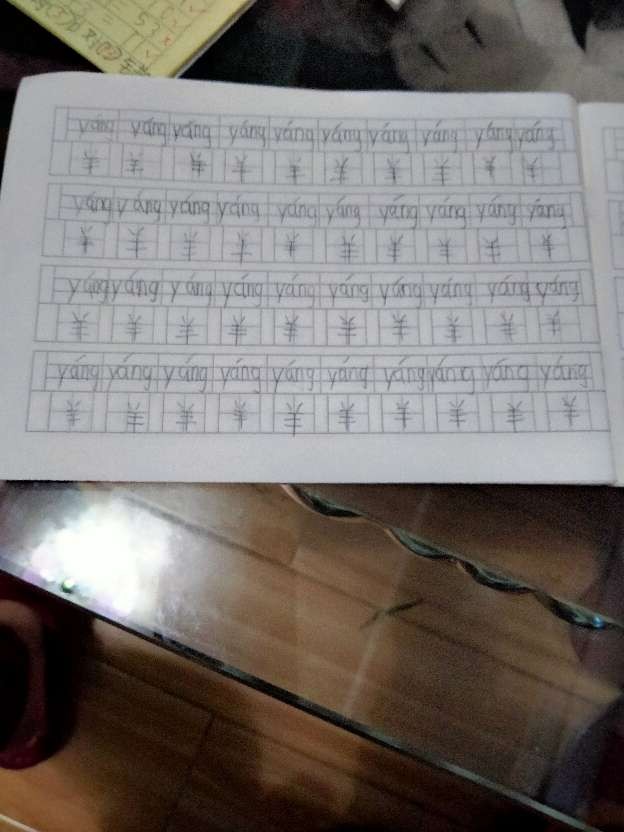 yáng yáng yáng yáng yáng yáng yáng yáng yáng yáng
羊 羊 羊 羊 羊 羊 羊 羊 羊 羊
yáng yáng yáng yáng yáng yáng yáng yáng yáng yáng
羊 羊 羊 羊 羊 羊 羊 羊 羊 羊
yáng yáng yáng yáng yáng yáng yáng yáng yáng yáng
羊 羊 羊 羊 羊 羊 羊 羊 羊 羊
yáng yáng yáng yáng yáng yáng yáng yáng yáng yáng
羊 羊 羊 羊 羊 羊 羊 羊 羊 羊